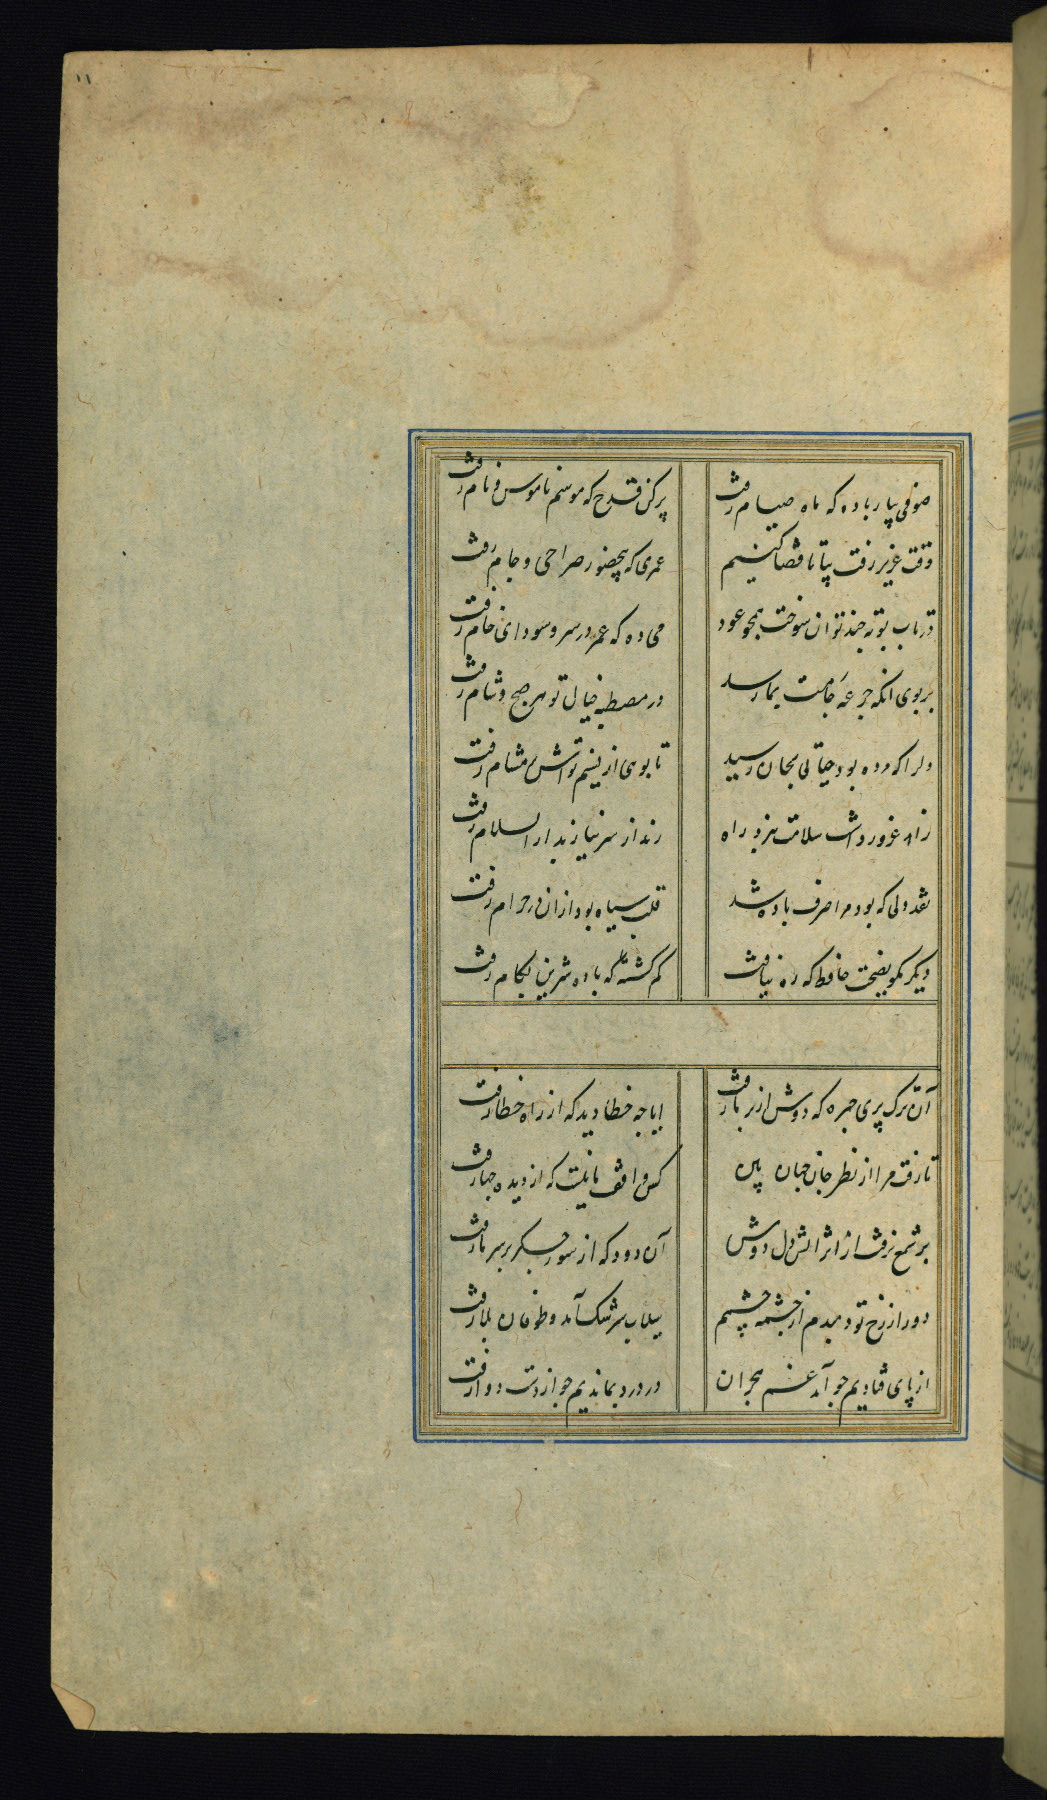 ١١
صوفی بیار باده که ماه صیام رفت
پر کن قدح که موسم ناموس و نام رفت
وقت عزیز رفت بیا تا قضا کنیم
عمری که بی حضور صراحی و جام رفت
در تاب توبه چند توان سوخت همچو عود
می ده که عمر در سر سودای خام رفت
بر بوی آنکه جرعه جامت بما رسد
در مصطبه خیال تو هر صبح و شام رفت
دلرا که مرده بود حیاتی بجان رسید
تا بوی از نسیم تواش در مشام رفت
زاهد غرور داشت سلامت نبرد راه
رند از سر نیاز بدار السلام رفت
نقد دلی که بود مرا صرف باده شد
قلب سیاه بود از آن در حرام رفت
دیگر مگو نصیحت حافظ که ره نیافت
گم گشته که باده شیرین بکام رفت
آن ترک پری چهره که دوش از بر ما رفت
ایا چه خطا دید که از راه خطا رفت
تا رفت مرا از نظر جان جهان بین
کس واقف ما نیست که از دیده چها رفت
بر شمع نرفت از اثر آتش دل دوش
آن دود که از سوز جگر بر سر ما رفت
دور از رخ تو دمبدم از چشمه چشمم
سیلاب سرشک آمد و طوفان بلا رفت
از پای فتادیم چو آمد غم هجران
در درد بماندیم چو از دست دوا رفت